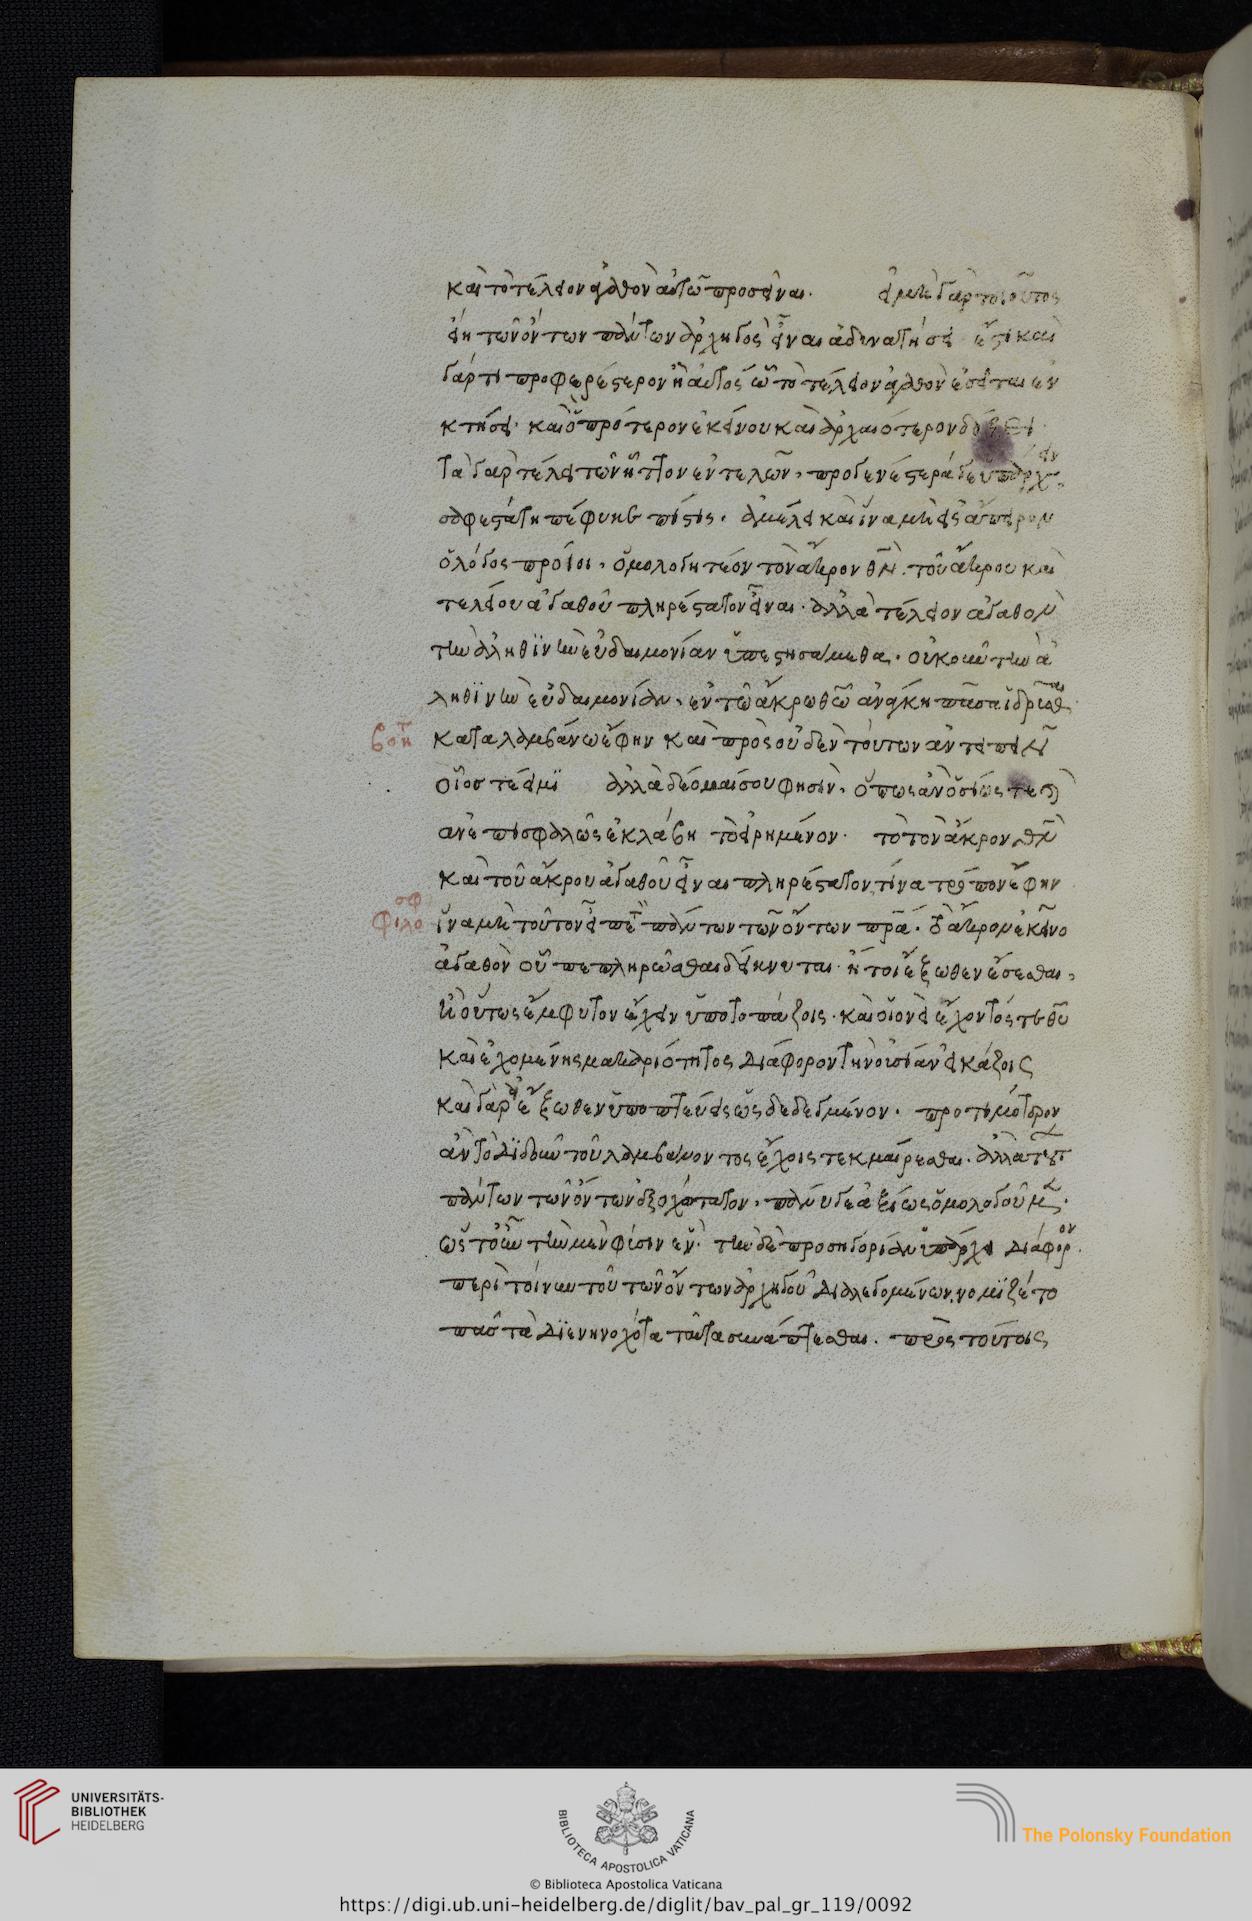 καὶ τὸ τέλειον ἀγαθὸν αὐτῷ προσεῖναι. εἰ μὴ γὰρ τοιοῦτος
εἴη τῶν ὄντων πάντων ἀρχηγὸς εἶναι ἀδυνατήσει ἔσται
γάρ τι προφερέστερον ἢ αὐτός ᾧ τὸ τέλειον ἀγαθὸν ἔσεται ἐν
κτήσει. καὶ ὃ πρότερον ἐκείνου καὶ ἀρχαιότερον
τὰ γὰρ τέλεια τῶν ἧττον ἐντελῶν, προγενέστερα δὲ ὑπάρχειν
σαφεστάτη πέφυκε πίστις. ἀμέλει καὶ ἵνα μὴ εἰς ἄπειρον
ὁ λόγος προΐοι, ὁμολογητέον τὸν ἄκρον θεὸν. τοῦ ἄκρου καὶ
τελείου ἀγαθοῦ πληρέστατον εἶναι. ἀλλὰ τέλειον ἀγαθὸν
τὴν ἀληθινὴν εὐδαιμονίαν ὑπεστησάμεθα. οὐκοῦν τὴν ἀ
ληθινὴν εὐδαιμονίαν, ἐν τῷ ἄκρῳ θεῷ ἀνάγκη πᾶσα ἱδρῦσθαι
βοητ καταλαμβάνω ἔφην καὶ πρὸς οὐδὲν τούτων ἀντειπεῖν
οἷός τέ εἰμι ἀλλὰ δέομαί σου φησὶν, ὅπως ἂν ὁσίως τε καὶ
ἀνεπισφαλῶς ἐκλάβῃ τὸ εἰρημένον. τὸ τὸν ἄκρον θεὸν
καὶ τοῦ ἄκρου ἀγαθοῦ εἶναι πληρέστατον, τίνα τρόπον ἔφην
φιλοσφ ἵνα μὴ τοῦτον πάντων τῶν ὄντων πρα. ἄκρον ἐκεῖνο
ἀγαθὸν οὗ πεπληρῶσθαι δείκνυται. ἤτοι ἔξωθεν
ἢ οὕτως ἔμφυτον ἔχειν ὑποτοπάζοις. καὶ οἱονεὶ ἔχοντός τε θεοῦ
καὶ ἐχομένης μακαριότητος διάφορον τὴν οὐσίαν εἰκάζοις
καὶ γὰρ εἰ ἔξωθεν ὑποπτεύεις ὡς δεδεγμένον. προτιμότερον
ἂν τὸ διδοῦν τοῦ λαμβάνοντος ἔχοις τεκμαίρεσθαι. ἀλλὰ
πάντων τῶν ὄντων ἐξοχώτατον, πάνυ δὲ ἀξίως ὁμολογοῦμεν.
ὡς τὸ ἓν τὴν μὲν φύσιν ἓν. τὴν δὲ προσηγορίαν ὑπάρχει διάφορον.
περὶ τοίνυν τοῦ τῶν ὄντων ἀρχηγοῦ διαλεγομένων, νομιζέτο
πᾶς τὰ διενηνοχότα ταῦτα συνάπτεσθαι. πρὸς τούτοις
UNIVERSITÄTS-
BIBLIOTHEK
HEIDELBERG
BIBLIOTECA APOSTOLICA VATICANA
The Polonsky Foundation
© Biblioteca Apostolica Vaticana
https://digi.ub.uni-heidelberg.de/diglit/bav_pal_gr_119/0092